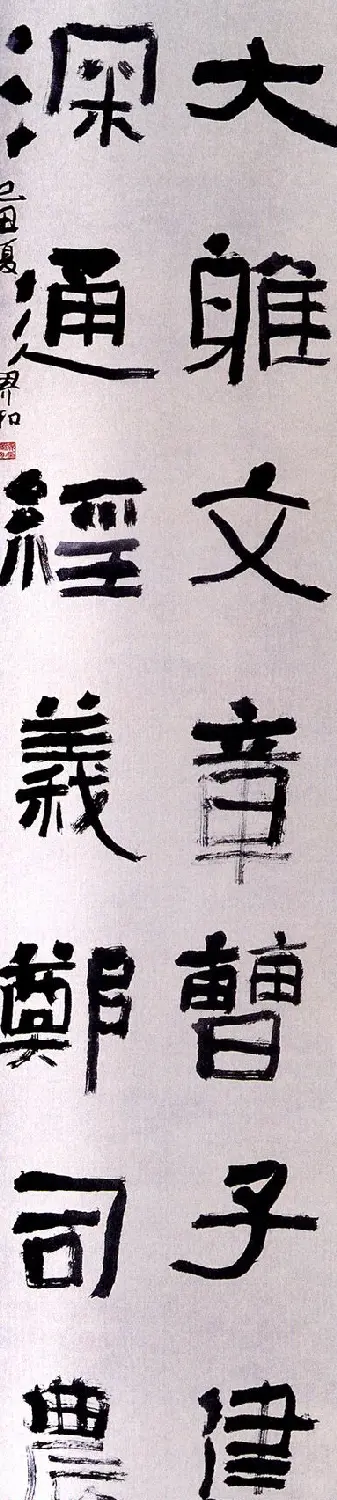 大雅文章曹子建
深通經義鄭司農
己丑夏